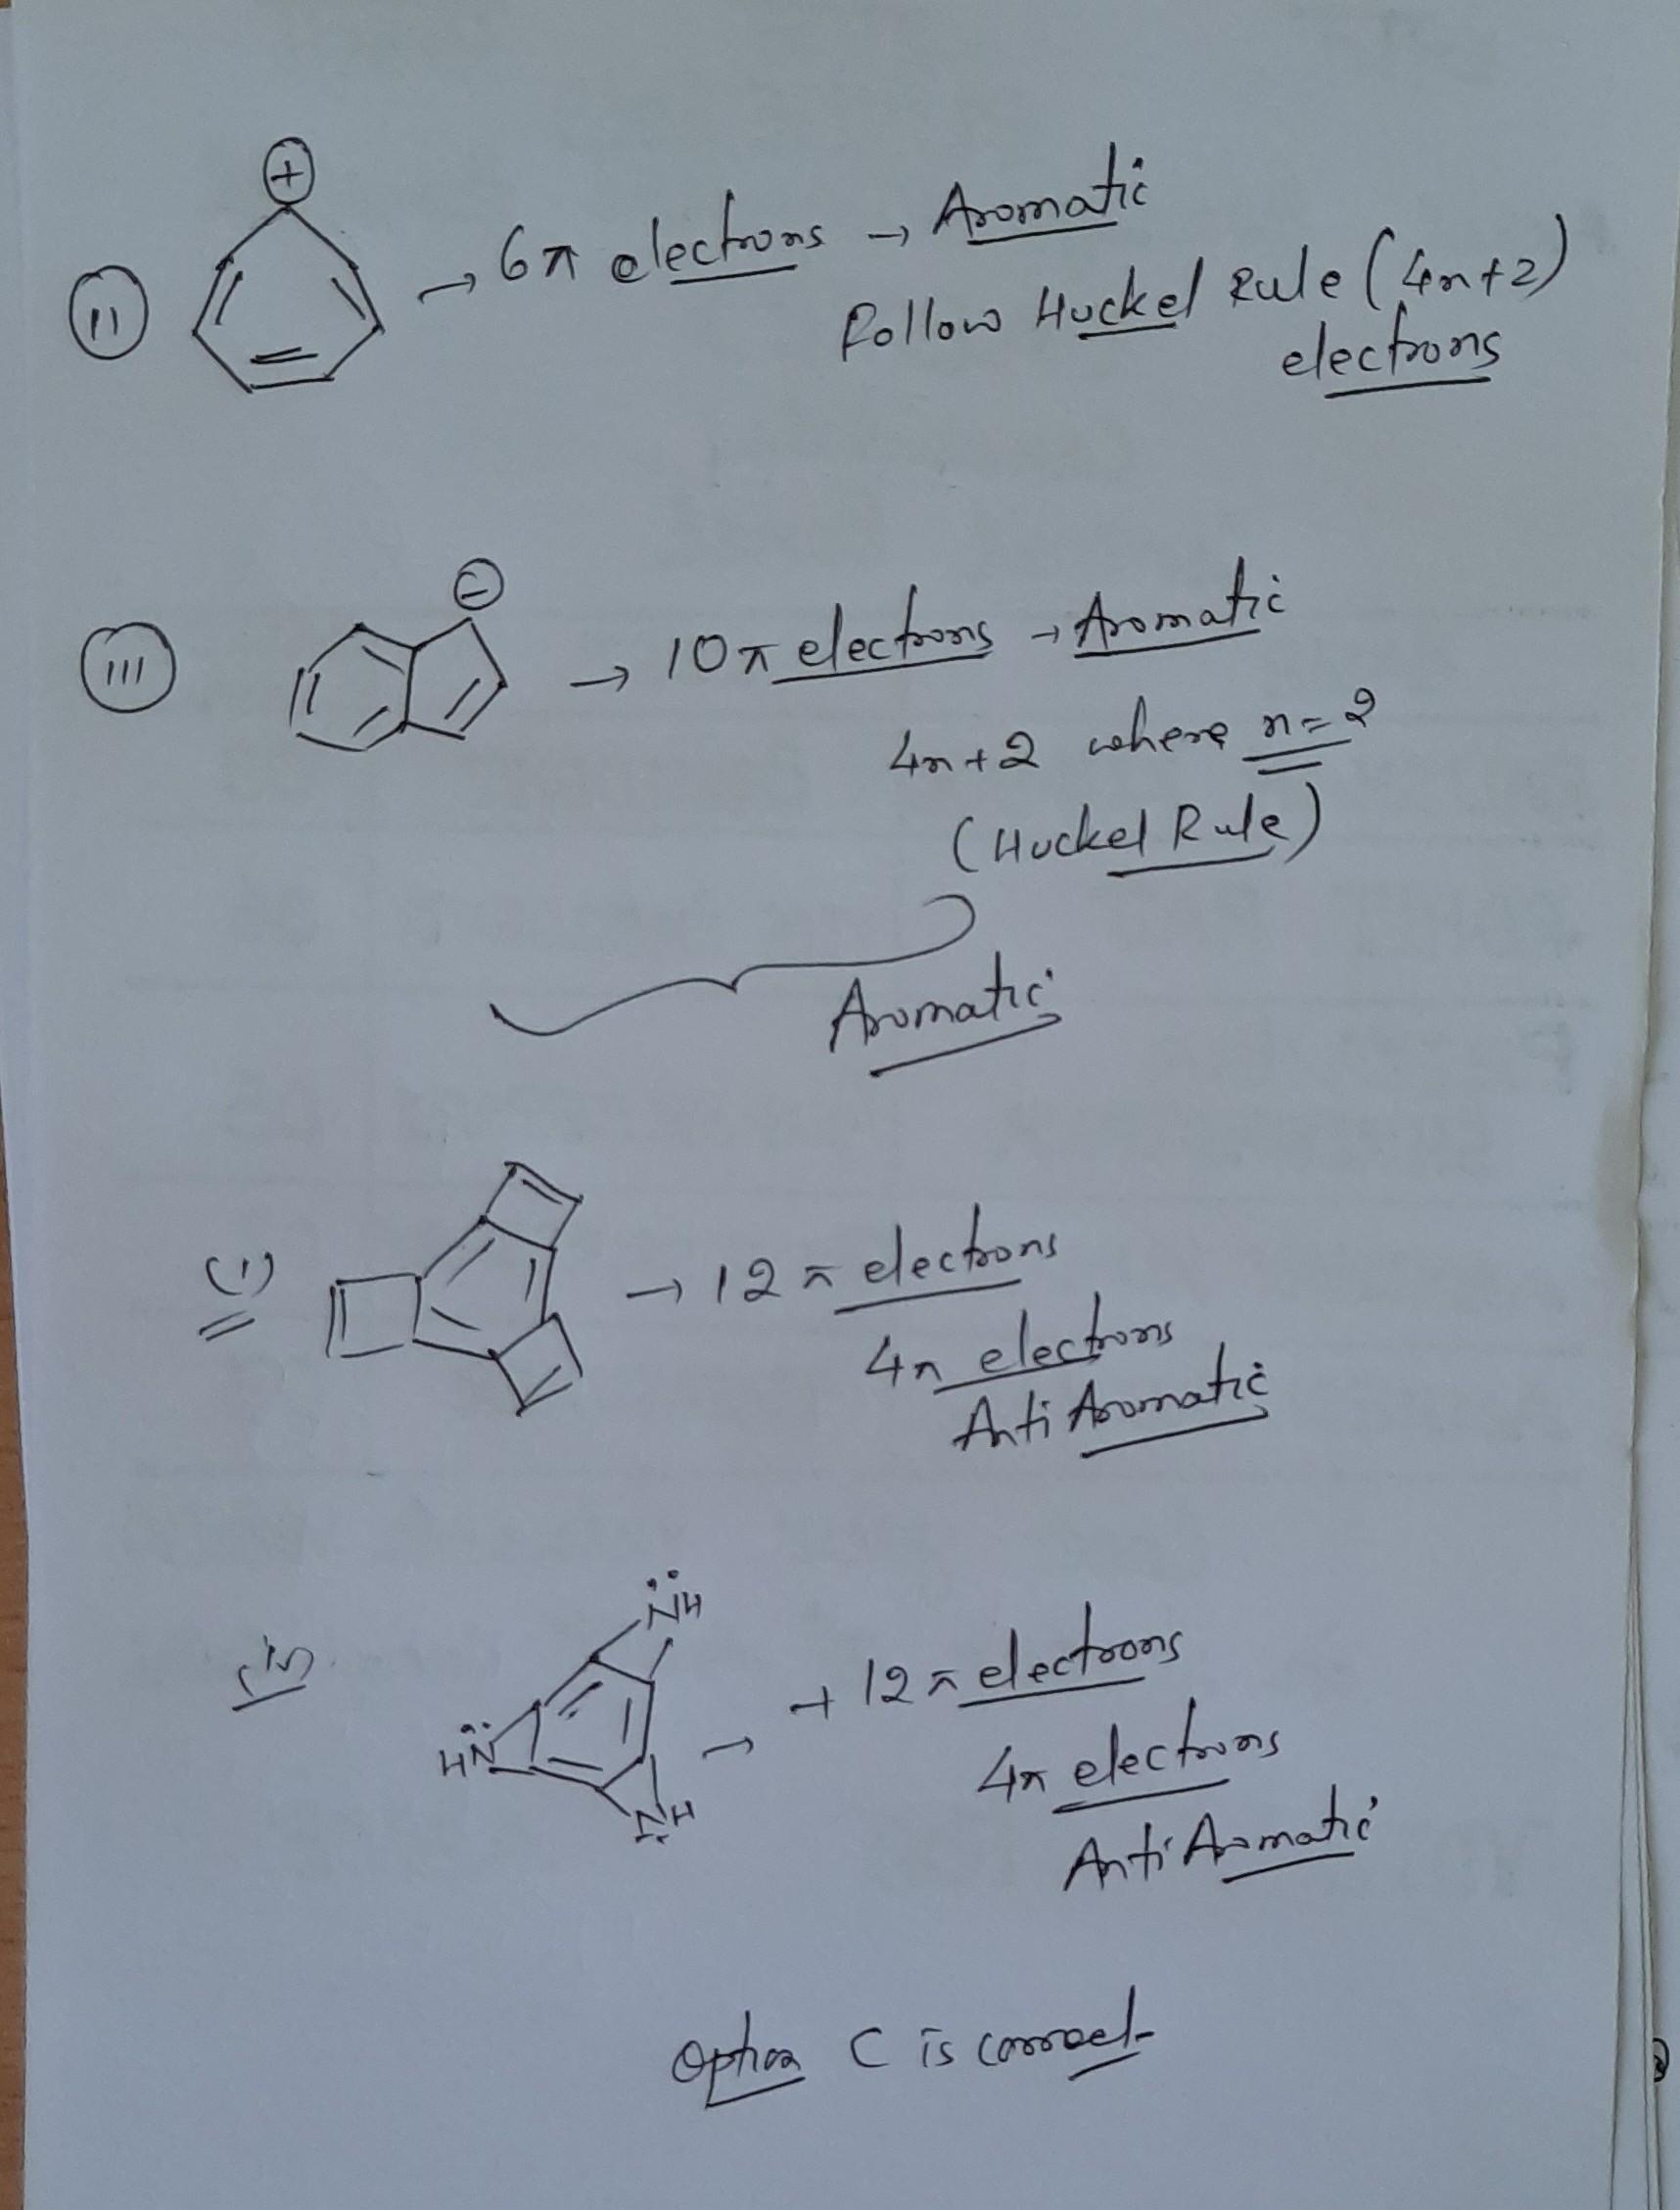 (II) ⊕ → 6π electrons → Aromatic
Follow Huckel Rule (4n+2)
electrons
(III) ⊖ → 10π electrons → Aromatic
4n+2 where n=2
(Huckel Rule)
Aromatic
(I) → 12π electrons
4n electrons
Anti Aromatic
(IV) NH HN NH → 12π electrons
4n electrons
Anti Aromatic
Option C is correct